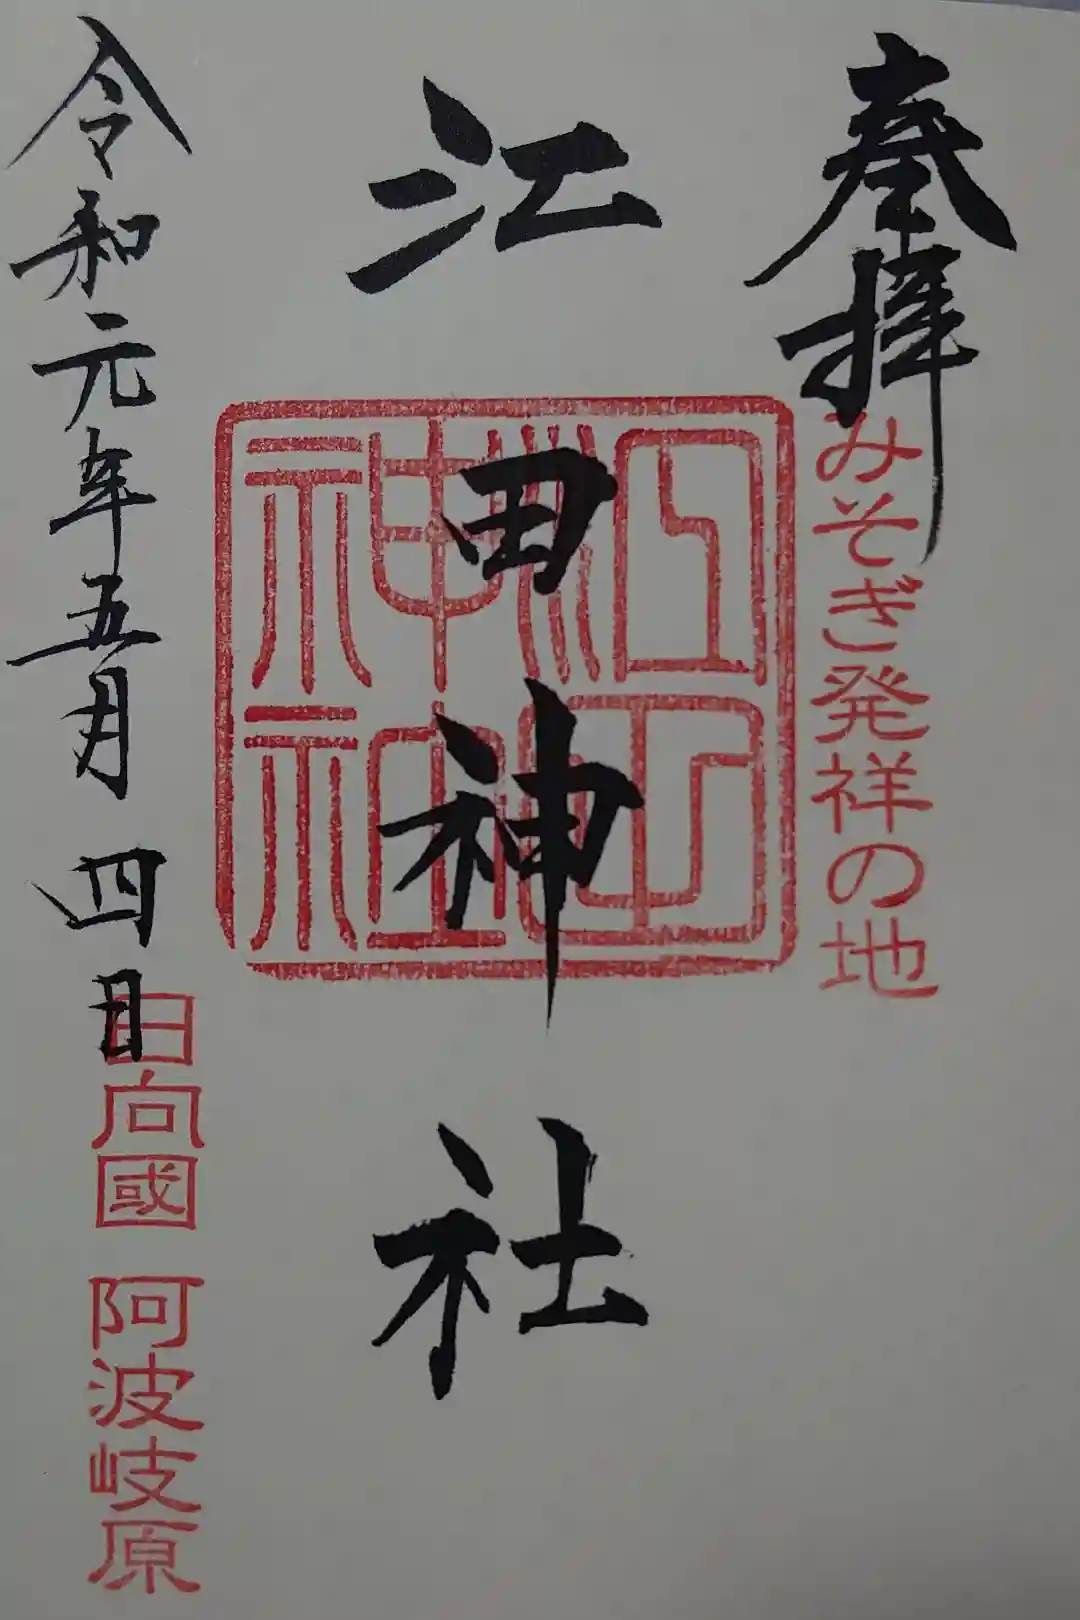 奉拝
みそぎ発祥の地
江田神社
江田神社
令和元年五月四日
日向國 阿波岐原